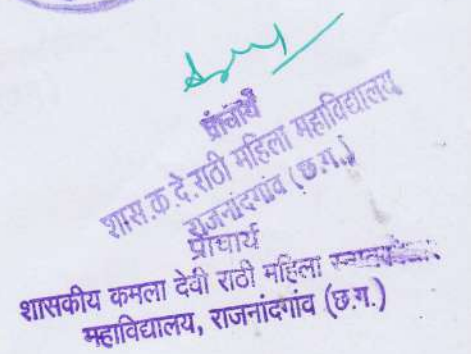 प्राचार्य
शास.क.दे.राठी महिला महाविद्यालय
राजनांदगांव (छ.ग.)
प्राचार्य
शासकीय कमला देवी राठी महिला
महाविद्यालय, राजनांदगांव (छ.ग.)